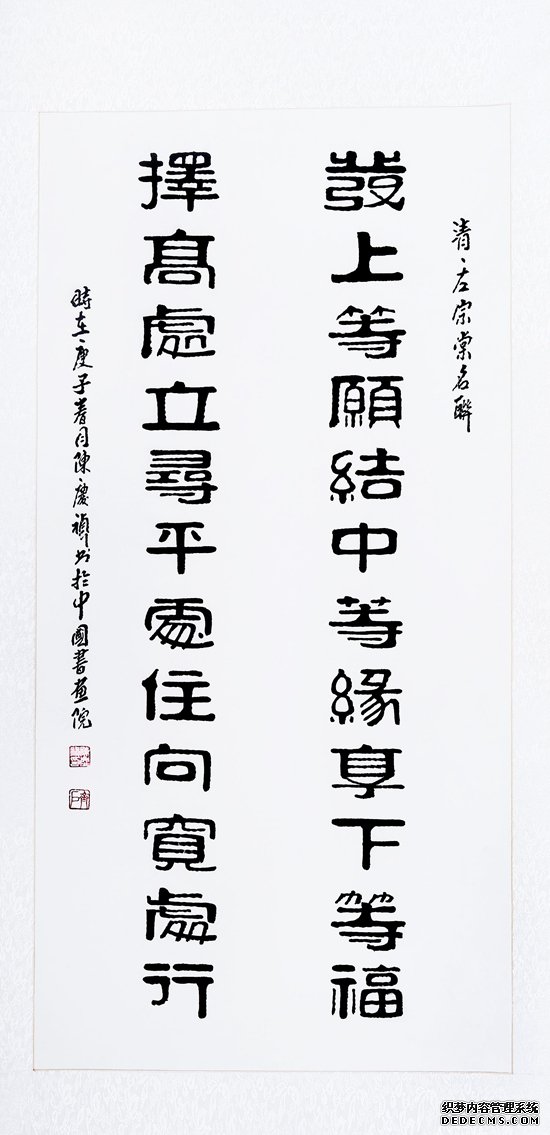 清、左宗棠名聯
發上等願結中等緣享下等福
擇高處立尋平處住向寬處行
時在庚子春月陳慶禎書於中國書畫院
织梦内容管理系统
DEDECMS.COM